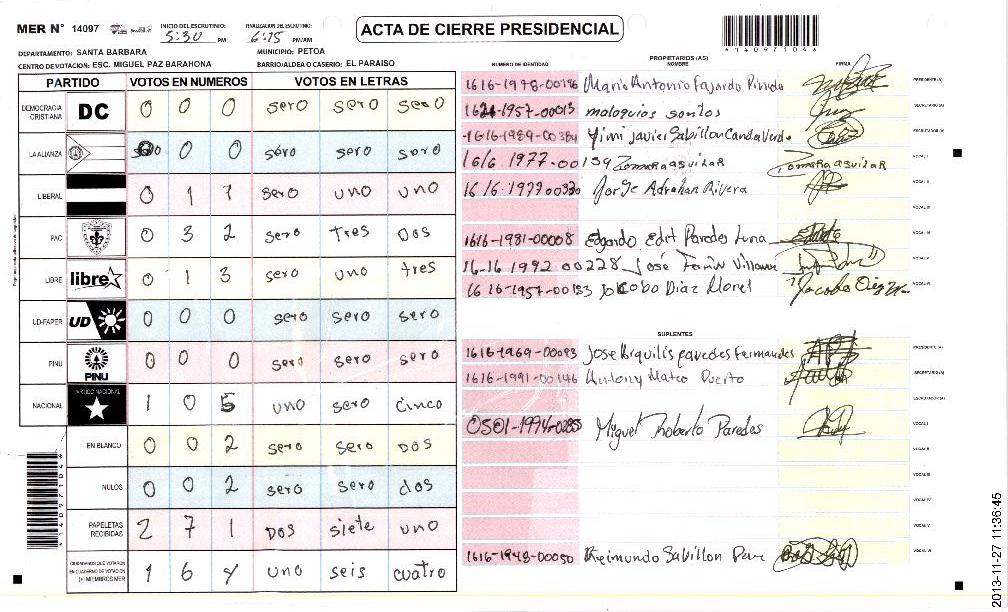 MER N° 14097 INICIO DEL ESCRUTINIO: 5:30 PM FINALIZACION DEL ESCRUTINIO: 6:15 PM/AM
ACTA DE CIERRE PRESIDENCIAL
41409710461
DEPARTAMENTO: SANTA BARBARA MUNICIPIO: PETOA
CENTRO DE VOTACION: ESC. MIGUEL PAZ BARAHONA BARRIO/ALDEA O CASERIO: EL PARAISO
PARTIDO VOTOS EN NUMEROS VOTOS EN LETRAS
DEMOCRACIA CRISTIANA DC 0 0 0 sero sero sero
LA ALIANZA 0 0 0 sero sero sero
LIBERAL 0 1 1 sero uno uno
PAC 0 3 2 sero tres Dos
LIBRE libre 0 1 3 sero uno tres
UD-FAPER UD 0 0 0 sero sero sero
PINU PINU 0 0 0 sero sero sero
NACIONAL PARTIDO NACIONAL 1 0 5 uno sero cinco
EN BLANCO 0 0 2 sero sero DOS
NULOS 0 0 2 sero sero dos
PAPELETAS RECIBIDAS 2 7 1 DOS siete uno
CIUDADANOS QUE VOTARON EN CUADERNO DE VOTACION (+) MIEMBROS MER 1 6 4 uno seis cuatro
PROPIETARIOS (AS)
NUMERO DE IDENTIDAD NOMBRE FIRMA
Mario Antonio Fajardo Pineda PRESIDENTE(A)
1621-1957-00013 moloquios santos SECRETARIO(A)
1616-1989-00384 Yimi Javier Sabillon ESCRUTADOR(A)
1616 1977-00159 Zomara aguilar Zomara aguilar VOCAL I
1616-1977 00330 Jorge Adrahan Rivera VOCAL II
VOCAL III
1616-1981-00008 Edgardo Edit Paredes Luna VOCAL IV
16-16 1992 00228 José VOCAL V
16 16-1957-00153 Jacobo Diaz VOCAL VI
SUPLENTES
1616-1969-00093 Jose paredes Fernandes PRESIDENTE(A)
1616-1991-00146 Antony Mateo Puerto SECRETARIO(A)
ESCRUTADOR(A)
0501-1994-0285 Miguel Roberto Paredes VOCAL I
VOCAL II
VOCAL III
VOCAL IV
VOCAL V
1616-1948-00050 Reimundo Sabillon VOCAL VI
2013-11-27 11:36:45